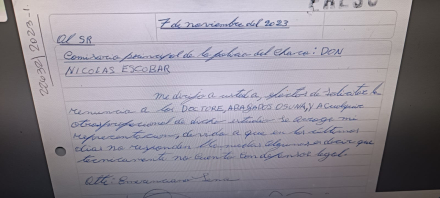 FALSO
7 de noviembre del 2023
20230/2023-1
Al SR
Comisario principal de la policia del Chaco: DON
NICOLAS ESCOBAR
me dirijo a usted a efectos de solicitar la
renuncia a los DOCTORE, ABAGADOS OSUNA, Y A cualquier
otro profesional de dicho estudio
representacion, devido a que en los últimos
dias no responden llamadas algunas es decir que
tecnicamente no cuento con defensor legal.
Atte: